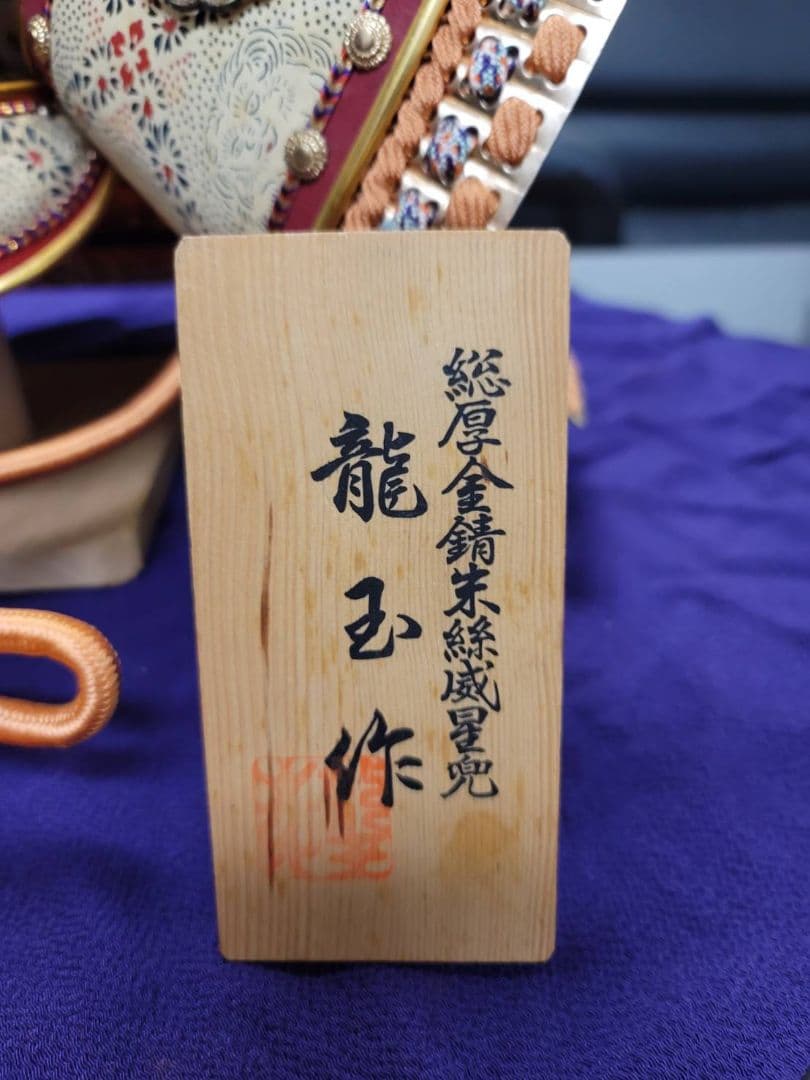 総厚金錆朱絲威星兜
龍玉作